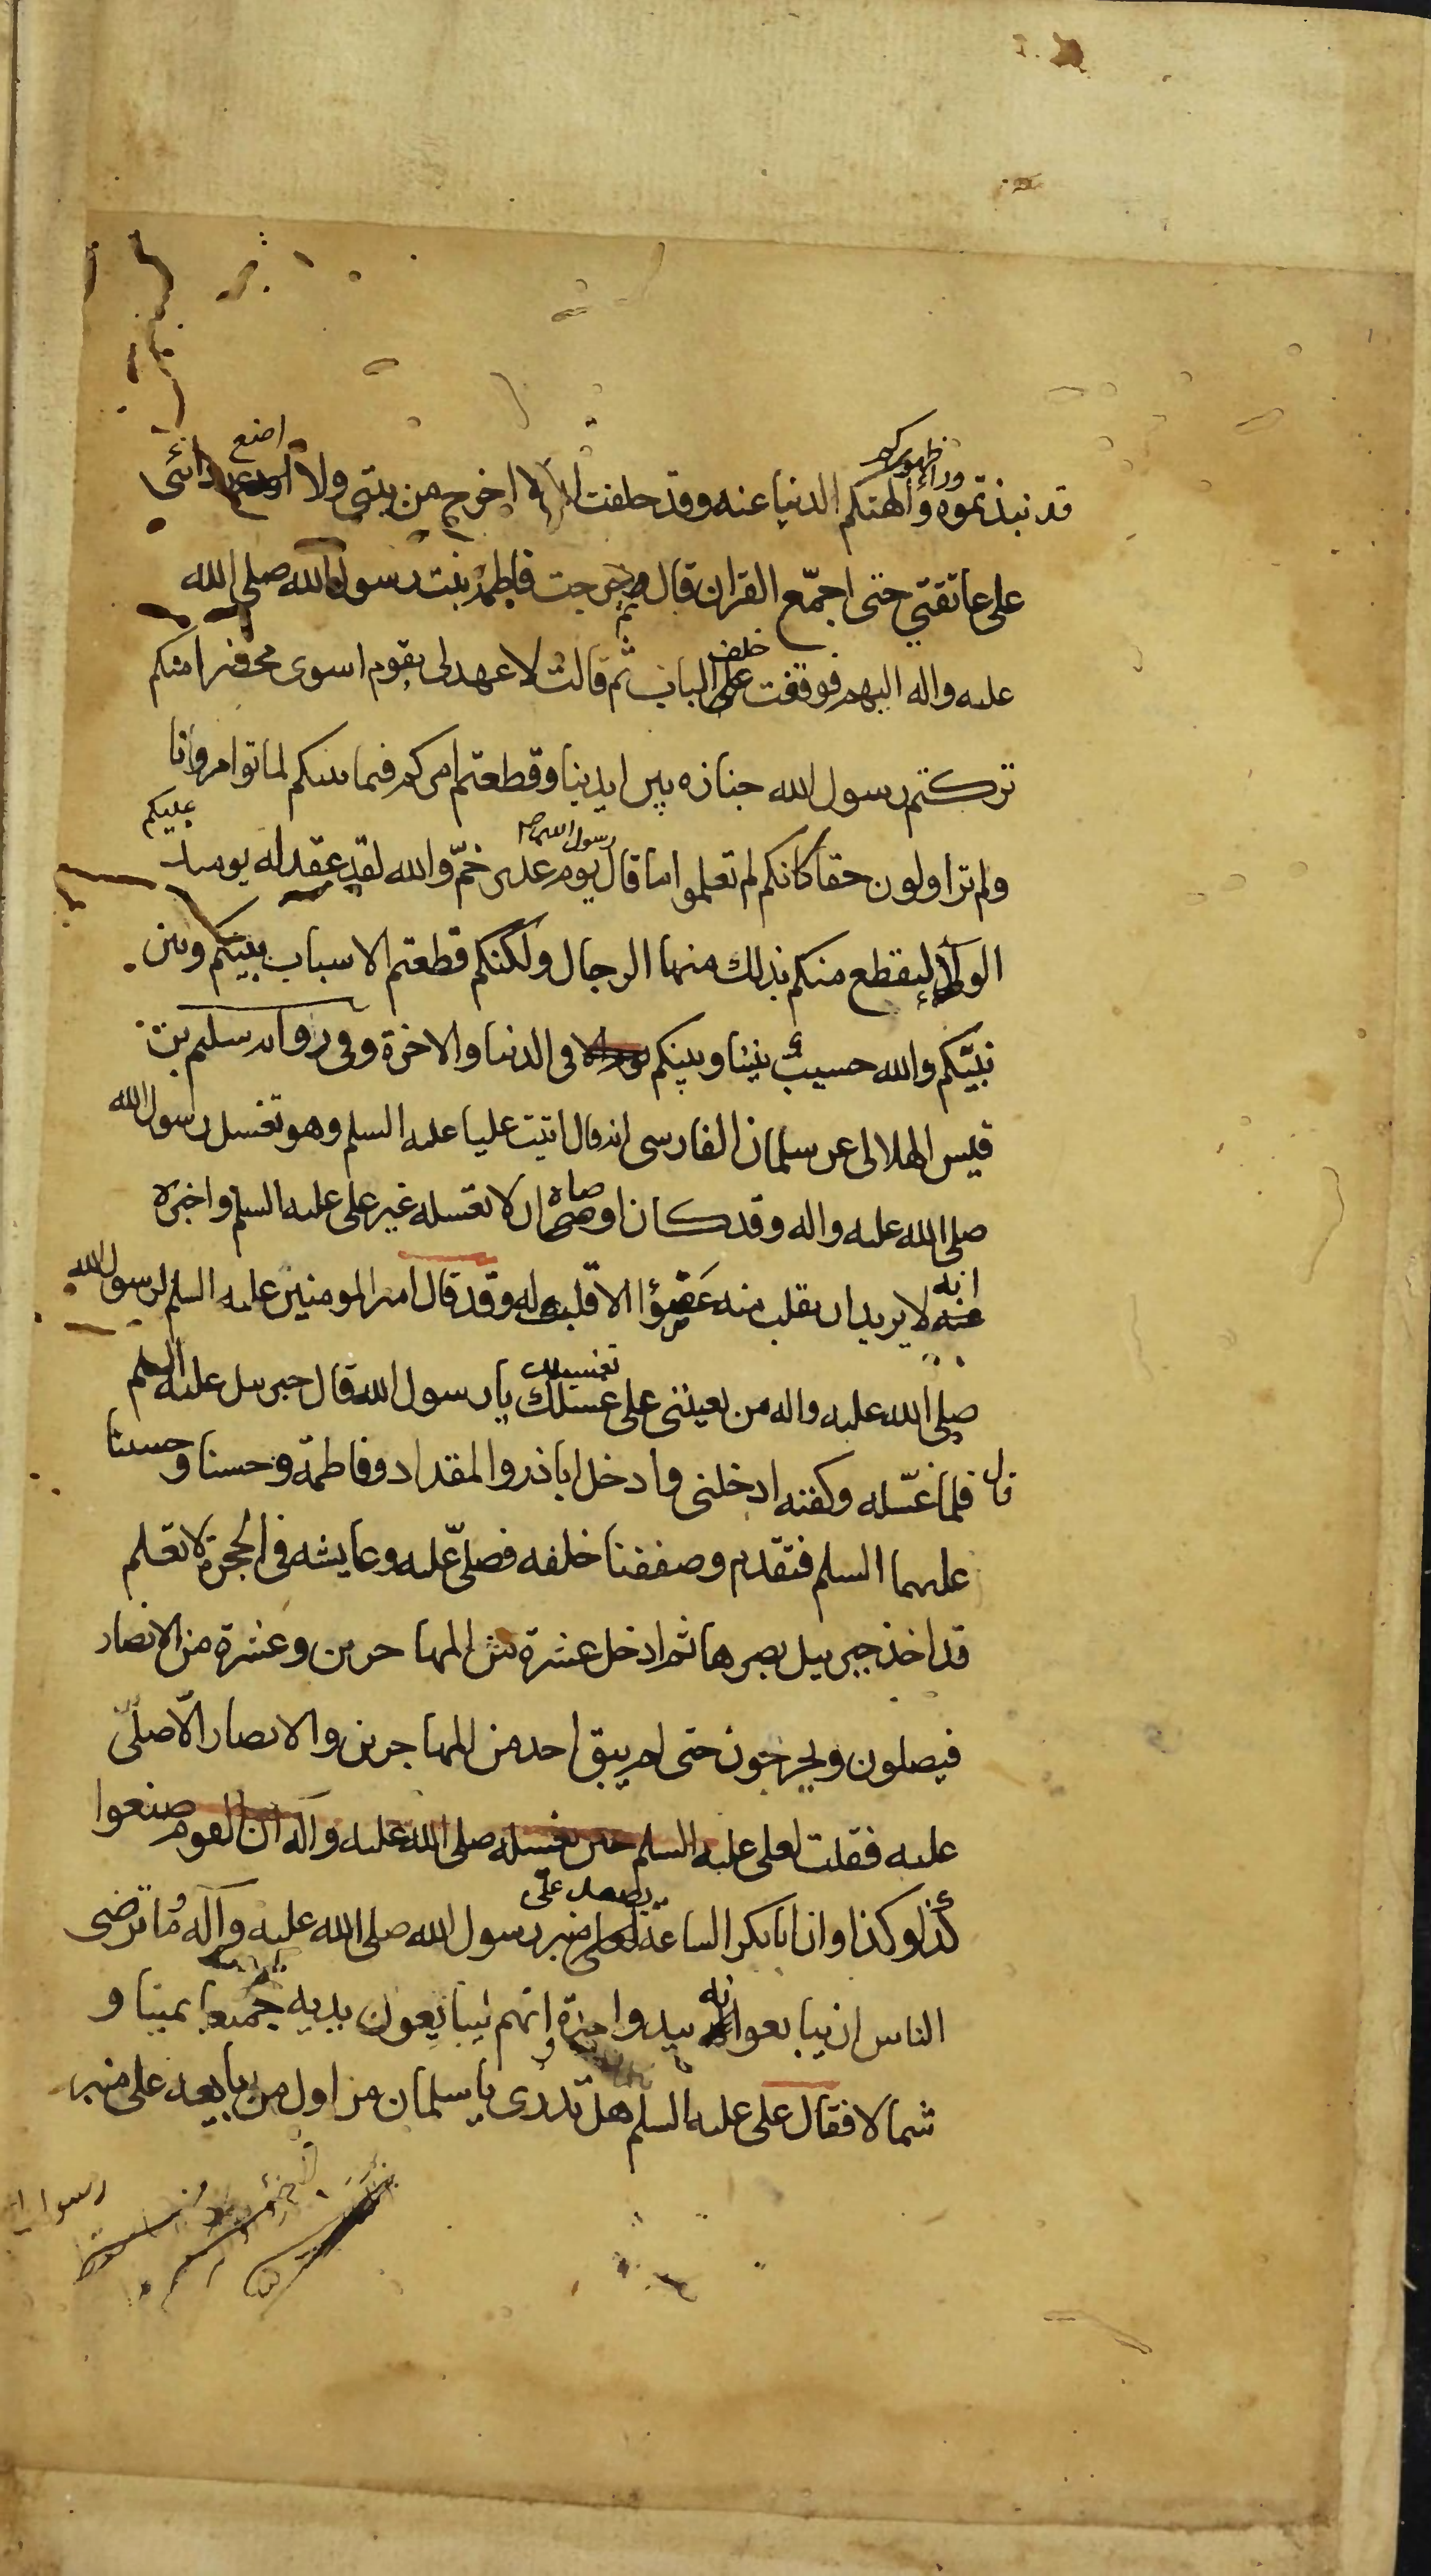 قد نبذتموه وراء ظهوركم والهتكم الدنيا عنه وقد حلفت ان لا اخرج من بيتي ولا اضع ردائي
على عاتقتي حتى اجمّع القران قال ثم خرجت فاطمة بنت رسول الله صلى الله
عليه واله اليهم فوقفت خلف الباب ثم قالت لا عهد لى بقوم اسوى محضرا منكم
تركتم رسول الله جنازه بين ايدينا وقطعتم امركم فيما بينكم لما توامرونا
ولم تراولون حقا كانكم لم تعلموا ما قال رسول الله ص يوم غدير خمّ والله لقد عقد له يومئذ عليكم
الولاء ليقطع منكم بذلك منها الرجال ولكنكم قطعتم الاسباب بينكم وبين
نبيّكم والله حسيب بيننا وبينكم فى الدنيا والاخرة وفى رواية سليم بن
قيس الهلالى عن سلمان الفارسى انه قال اتيت عليا عليه السلم وهو تغسل رسول الله
صلى الله عليه واله وقد كان اوصاه ان لا تغسله غير على عليه السلم واخبره
انه لا يريد ان يقلب منه عضوا الا قلب له وقد قال امير المومنين عليه السلم لرسول الله
صلى الله عليه واله من يعيننى على تغسيلك يا رسول الله قال جبرييل عليه السلم
قال فلما غسّله وكفنه ادخلنى وادخل اباذر والمقداد وفاطمة وحسنا وحسينا
عليهما السلم فتقدم وصففنا خلفه فصلىّ عليه وعايشه في الحجرة لا تعلم
قد اخذ جبرييل ببصرها ثم ادخل عشرة من المهاجرين وعشرة من الانصار
فيصلون ويخرجون حتى لم يبق احد من المهاجرين والانصار الّا صلّى
عليه فقلت لعلى عليه السلم حين يغسله صلى الله عليه وآله ان القوم صنعوا
كذا وكذا وان ابابكر الساعة لعلى منبر رسول الله صلى الله عليه وآله وما ترضى
الناس ان يبايعوا له بيد واحدة وانهم ليبايعون بيديه جميعا يمينا و
شمالا فقال على عليه السلم هل تدرى يا سلمان من اول من يبايعه على منبر